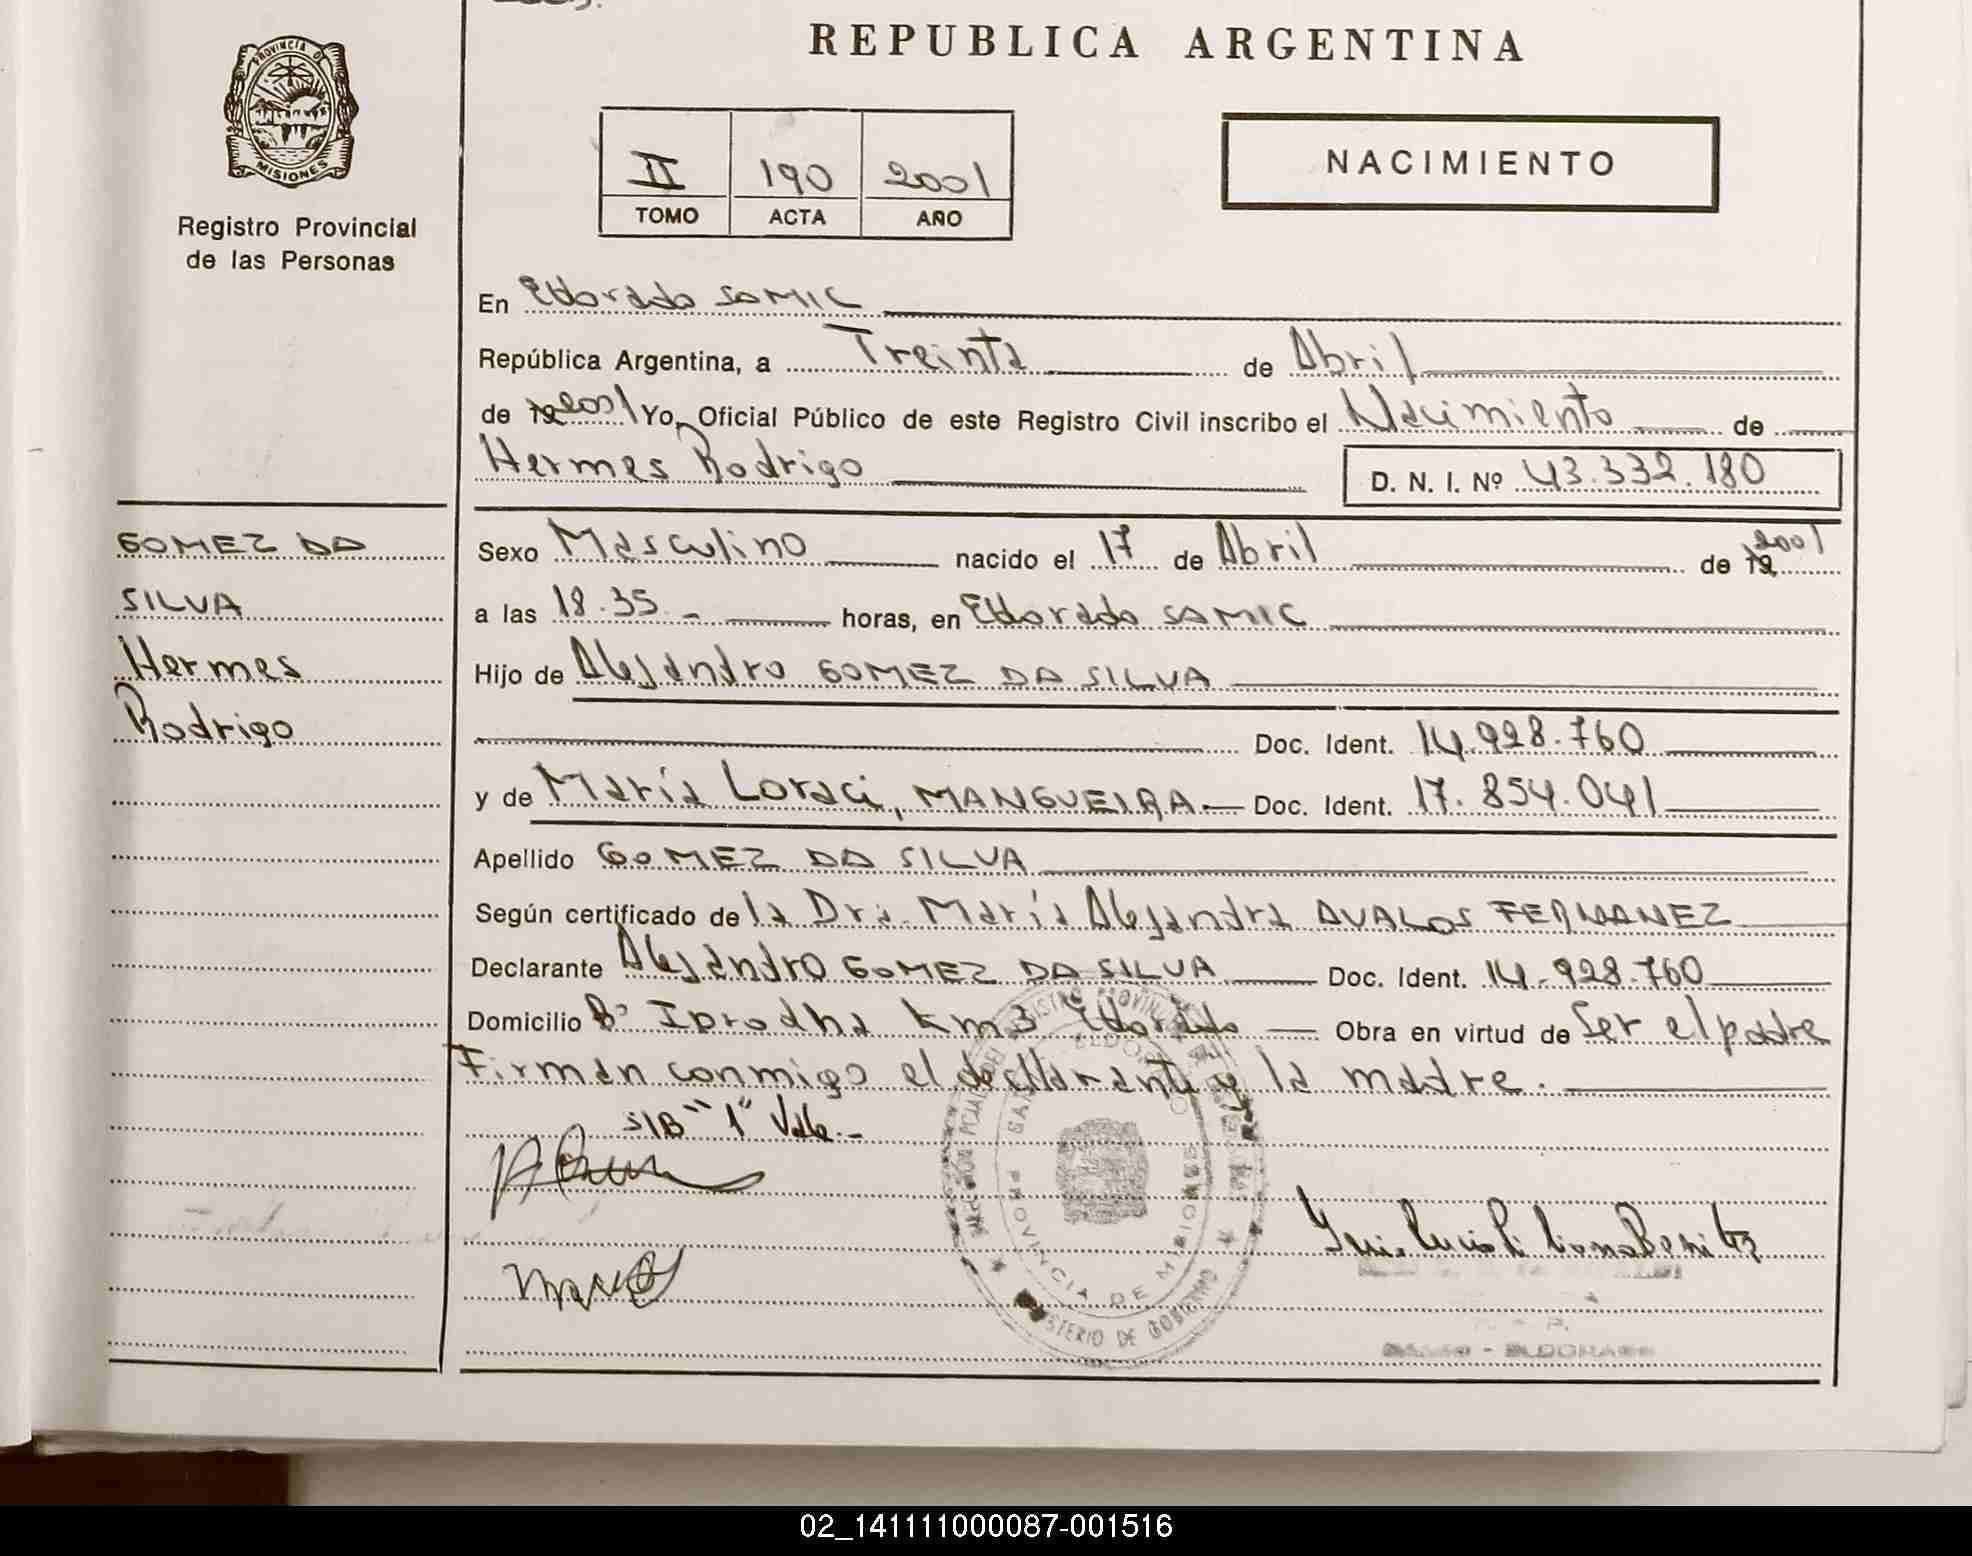 REPUBLICA ARGENTINA
PROVINCIA DE
MISIONES
Registro Provincial
de las Personas
II 190 2001
TOMO ACTA AÑO
NACIMIENTO
En Eldorado SAMIC
República Argentina, a Treinta de Abril
de 19 2001 Yo, Oficial Público de este Registro Civil inscribo el Nacimiento de
Hermes Rodrigo D. N. I. Nº 43.332.180
GOMEZ DA
SILVA
Hermes
Rodrigo
Sexo Masculino nacido el 17 de Abril de 19 2001
a las 18.35 horas, en Eldorado SAMIC
Hijo de Alejandro GOMEZ DA SILVA
Doc. Ident. 14.928.760
y de María Loraci, MANGUEIRA.- Doc. Ident. 17.854.041
Apellido GOMEZ DA SILVA
Según certificado de la Dra. María Alejandra AVALOS FERNANEZ
Declarante Alejandro GOMEZ DA SILVA Doc. Ident. 14.928.760
Domicilio Bº Iprodha Km3 Eldorado Obra en virtud de Ser el padre
Firman conmigo el declarante y la madre.
S/B "1" Vale.-
PROVINCIA DE MISIONES
MINISTERIO DE GOBIERNO
SAMIC - ELDORADO
02_141111000087-001516